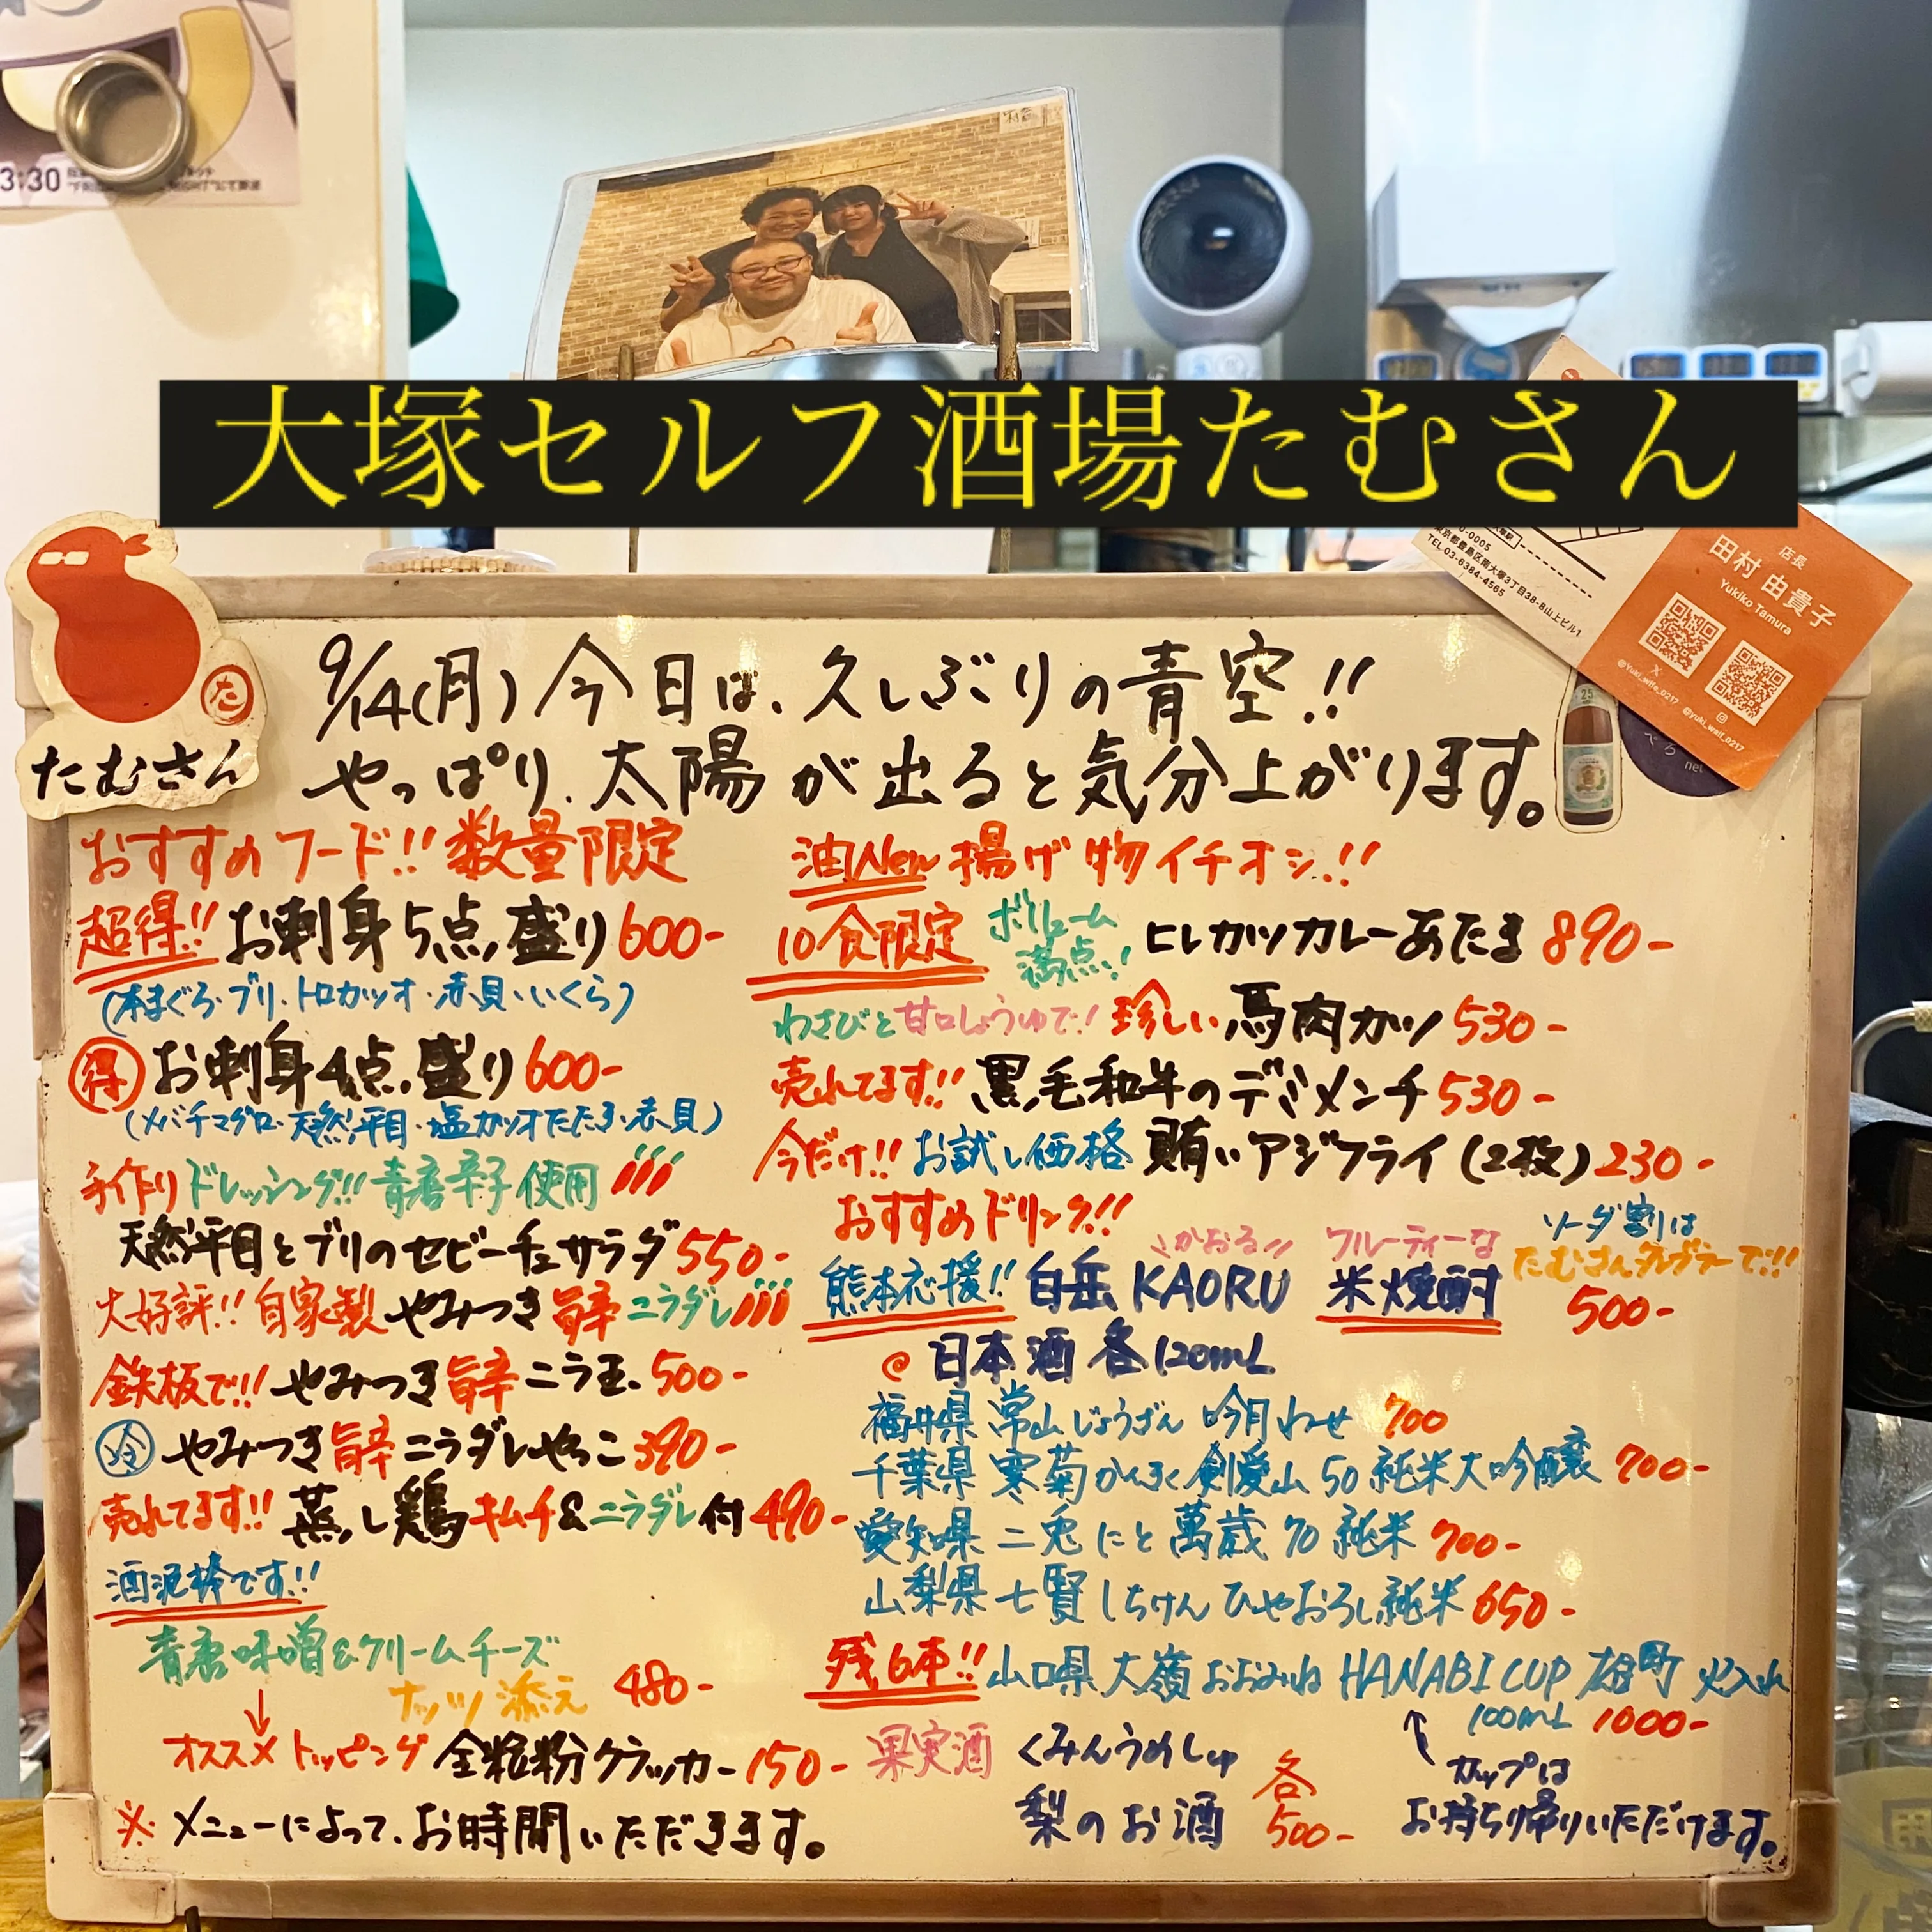 3:30
大塚セルフ酒場たむさん
東京都豊島区南大塚3丁目38-8山上ビル1
TEL 03-6384-4565
店長
田村 由貴子
Yukiko Tamura
@Yuki_wife_0217
@yuki_waif_0217
net
25
た
たむさん
9/14(月) 今日は、久しぶりの青空!!
やっぱり、太陽が出ると気分上がります。
おすすめフード!! 数量限定
超得!! お刺身5点盛り 600-
(本まぐろ・ブリ・トロカツオ・赤貝・いくら)
得 お刺身4点盛り 600-
(メバチマグロ・天然平目・塩カツオたたき・赤貝)
手作りドレッシング!! 青唐辛子使用
天然平目とブリのセビーチェサラダ 550-
大好評!! 自家製やみつき旨辛ニラダレ
鉄板で!! やみつき旨辛ニラ玉 500-
冷 やみつき旨辛ニラダレやっこ 390-
売れてます!! 蒸し鶏キムチ&ニラダレ付 490-
酒泥棒です!!
青唐味噌&クリームチーズ
ナッツ添え 480-
オススメトッピング 全粒粉クラッカー 150-
※メニューによって、お時間いただきます。
油New 揚げ物イチオシ!!
10食限定 ボリューム満点!! ヒレカツカレーあたま 890-
わさびと甘口しょうゆで! 珍しい馬肉カツ 530-
売れてます!! 黒毛和牛のデミメンチ 530-
今だけ!! お試し価格 賄いアジフライ(2枚) 230-
おすすめドリンク!!
熊本応援!! 白岳KAORU かおる フルーティーな米焼酎 ソーダ割はたむさんタレグラーで!! 500-
日本酒各120mL
福井県 常山 じょうざん 吟月 わせ 700
千葉県 寒菊 かんきく 剣愛山50 純米大吟醸 700-
愛知県 二兎 にと 萬歳70 純米 700-
山梨県 七賢 しちけん ひやおろし純米 650-
残6本!! 山口県 大嶺 おおみね HANABI CUP 雄町 火入れ
100mL 1000-
カップは
お持ち帰りいただけます。
果実酒 くみんうめしゅ
梨のお酒 各500-